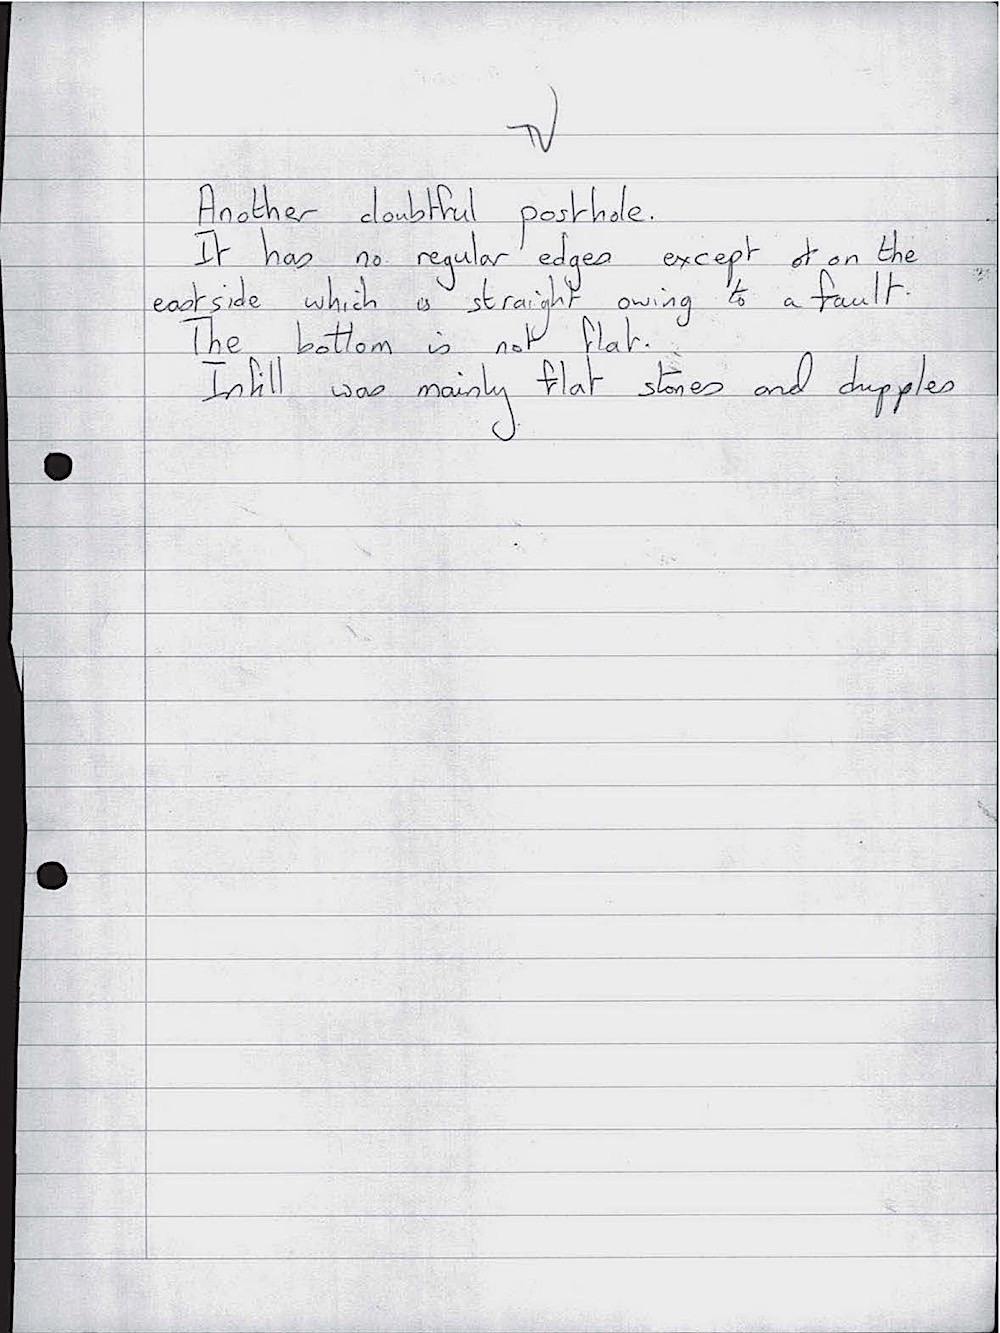 Another doubtful posthole.
It has no regular edges except at on the
east side which is straight owing to a fault.
The bottom is not flat.
Infill was mainly flat stones and